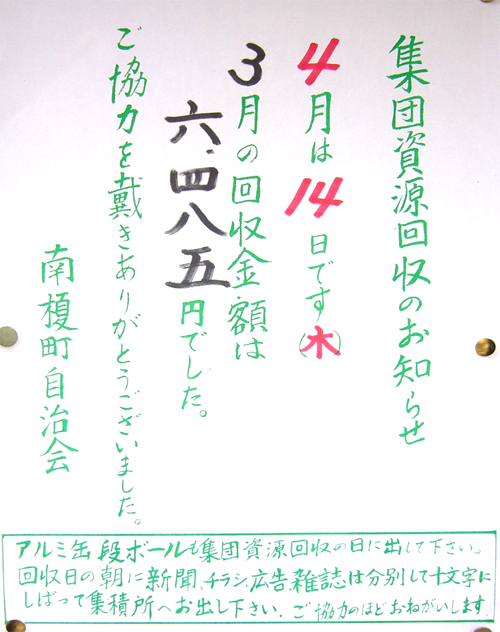 集団資源回収のお知らせ
4月は14日です(木)
3月の回収金額は
六.四八五円でした。
ご協力を戴きありがとうございました。
南榎町自治会
アルミ缶、段ボールも集団資源回収の日に出して下さい。
回収日の朝に新聞、チラシ、広告、雑誌は分別して十文字に
しばって集積所へお出し下さい。ご協力のほどおねがいします